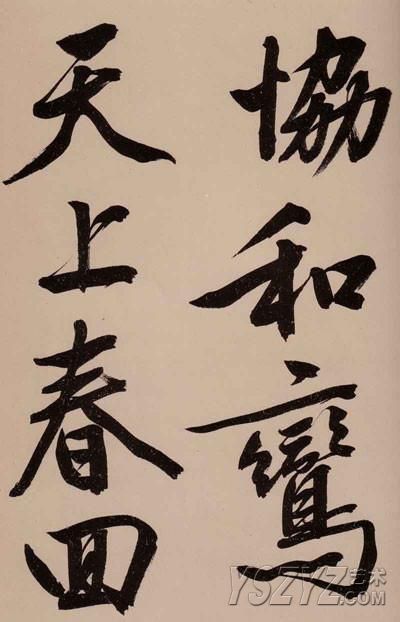 協和鸞
天上春回
YSZYZ艺术.COM